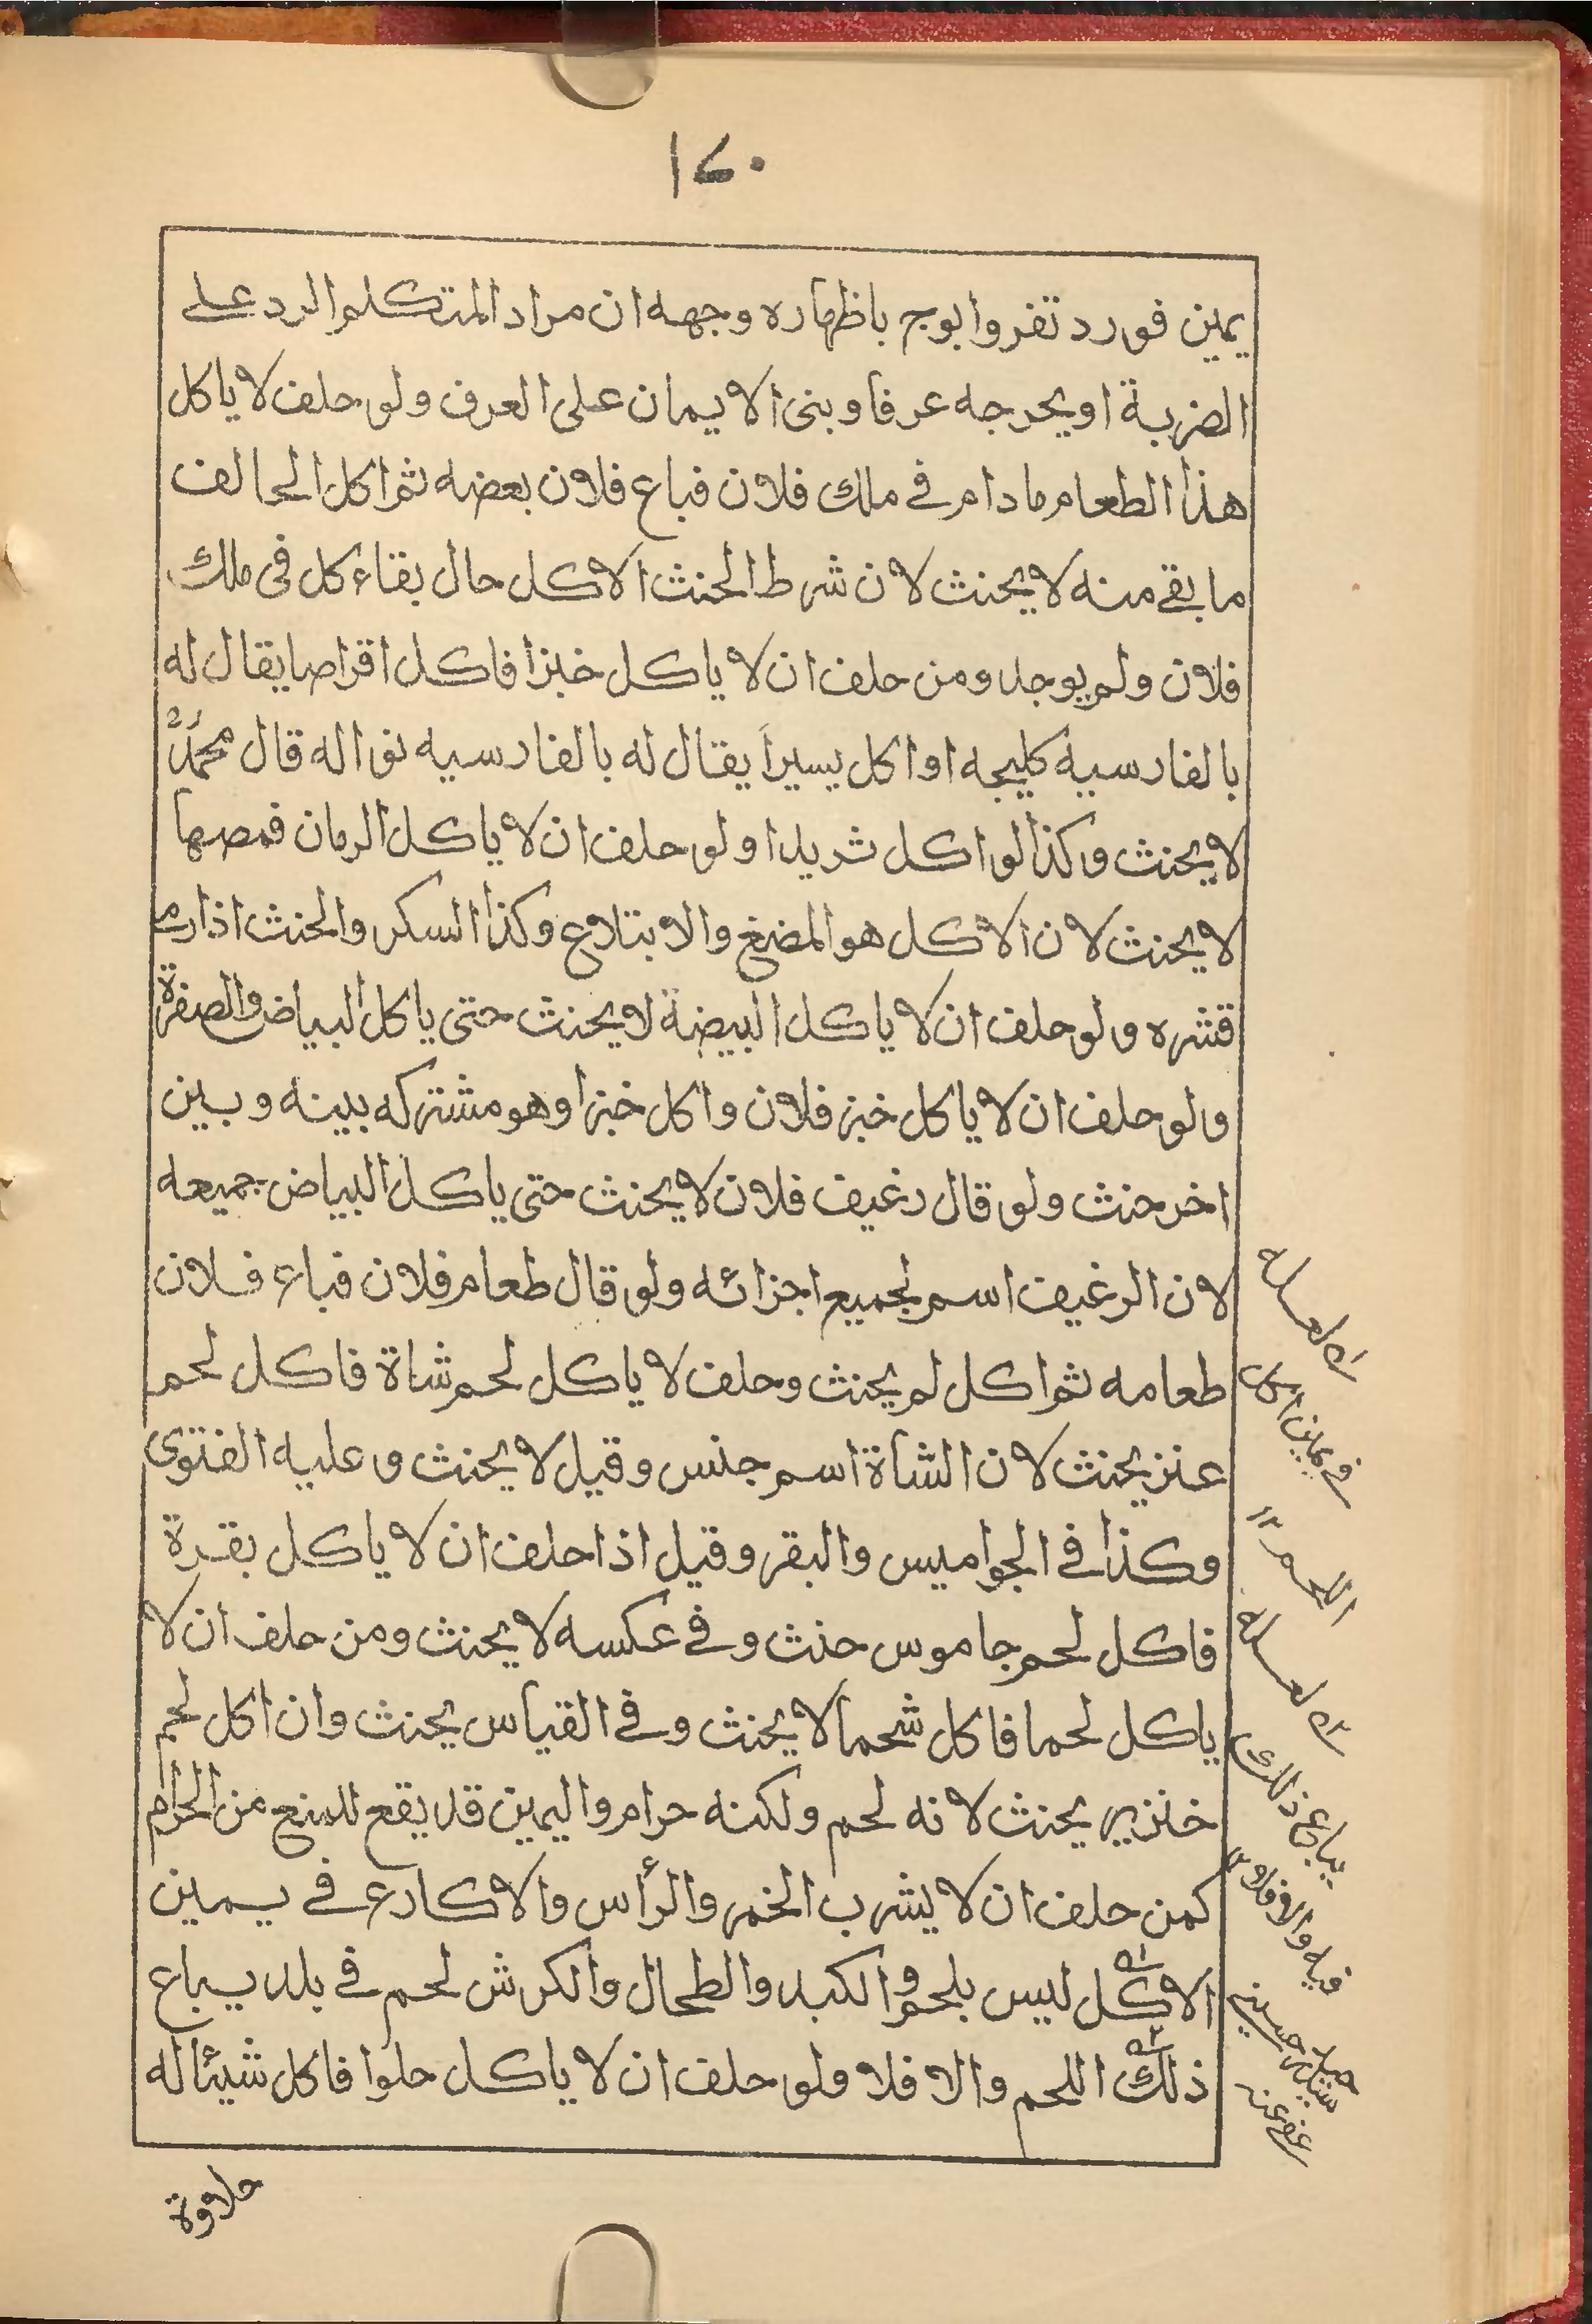 ١٧٠
يمين فورد تفروا بوج باظهاره وجهه ان مراد المتكلم الرد على
الضربة او يحرجه عرفا وبنى الايمان على العرف ولو حلف لا ياكل
هذا الطعام مادام في ملك فلان فباع فلان بعضه ثم اكل الحالف
ما بقے منه لا يحنث لان شرط الحنث الاكل حال بقاء كل فى ملك
فلان ولم يوجد ومن حلف ان لا ياكل خبزا فاكل اقراصا يقال له
بالفارسية كليجه او اكل يسيراً يقال له بالفارسيه نواله قال محمدؒ
لا يحنث وكذا لو اكل ثريدا ولو حلف ان لا ياكل الرمان فمصها
لا يحنث لان الاكل هو المضغ والابتلاع وكذا السكر والحنث اذا رمے
قشره ولو حلف ان لا ياكل البيضة لا يحنث حتى ياكل البياض والصفرة
ولو حلف ان لا ياكل خبز فلان واكل خبزا وهو مشتركه بينه وبين
اخر حنث ولو قال رغيف فلان لا يحنث حتى ياكل البياض جميعه
لان الرغيف اسم لجميع اجزائه ولو قال طعام فلان فباع فلان
طعامه ثم اكل لم يحنث وحلف لا ياكل لحم شاة فاكل لحم
عنز يحنث لان الشاة اسم جنس وقيل لا يحنث وعليه الفتوى
وكذا في الجواميس والبقر وقيل اذا حلف ان لا ياكل بقرة
فاكل لحم جاموس حنث وفي عكسه لا يحنث ومن حلف ان لا
ياكل لحما فاكل شحما لا يحنث وفي القياس يحنث وان اكل لحم
خنزير يحنث لانه لحم ولكنه حرام واليمين قد يقع للمنع من الحرام
كمن حلف ان لا يشرب الخمر والرأس والاكارع في يمين
الاكل ليس بلحم والكبد والطحال والكرش لحم في بلد يباع
ذلك اللحم والا فلا ولو حلف ان لا ياكل حلوا فاكل شيئا له
حلاوة
في يمين اكل
اللحم ١٢
يباع ذلك
فيه والا فلا ١٢